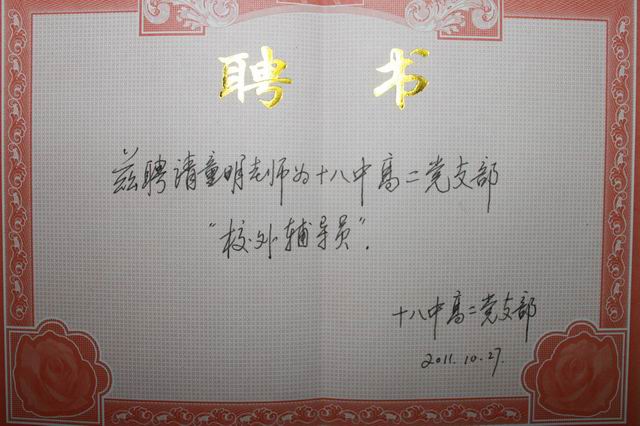 聘书
兹聘请童明老师为十八中高二党支部
“校外辅导员”.
十八中高二党支部
2011.10.27.